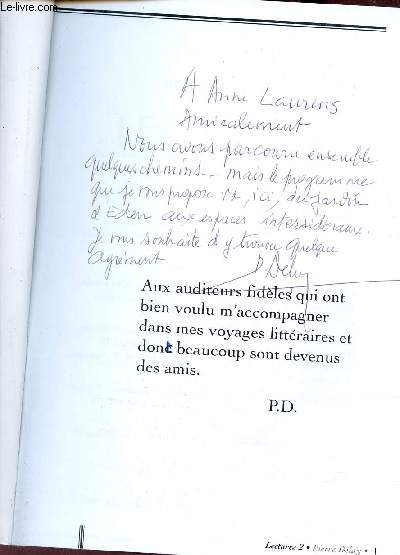 Le-livre.com
A Anne Laurens
Amicalement
Nous avons parcouru ensemble
quelques chemins.. mais le programme
que je vous propose va, ici, du jardin
d'Eden aux espaces intersidéraux.
Je vous souhaite d'y trouver quelque
agrément
P. Delay
Aux auditeurs fidèles qui ont
bien voulu m'accompagner
dans mes voyages littéraires et
dont beaucoup sont devenus
des amis.
P.D.
Lectures 2 • Pierre Delay • 1